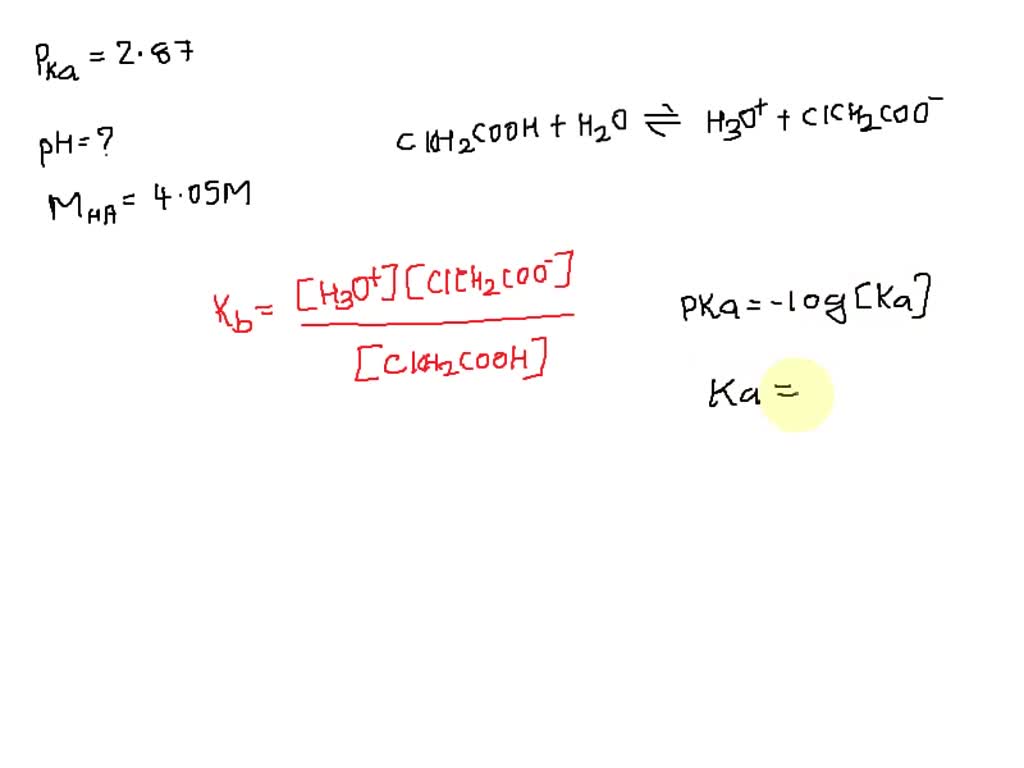 Pka = 2.87
pH = ?
ClCH2COOH + H2O ⇌ H3O+ + ClCH2COO-
MHA = 4.05M
Kb = [H3O+][ClCH2COO-] / [ClCH2COOH]
PKa = -log[Ka]
Ka =